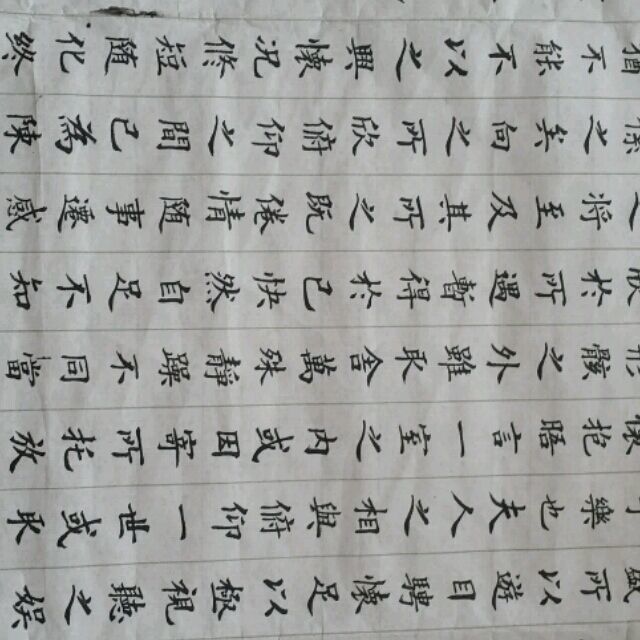 所以遊目騁懷足以極視聽之娛
樂也夫人之相與俯仰一世或取
懷抱晤言一室之內或因寄所托放
骸之外雖取舍萬殊靜躁不同當
於所遇暫得於己快然自足不知
將至及其所之既倦情隨事遷感
係之矣向之所欣俯仰之間已為陳
猶不能不以之興懷況修短隨化終